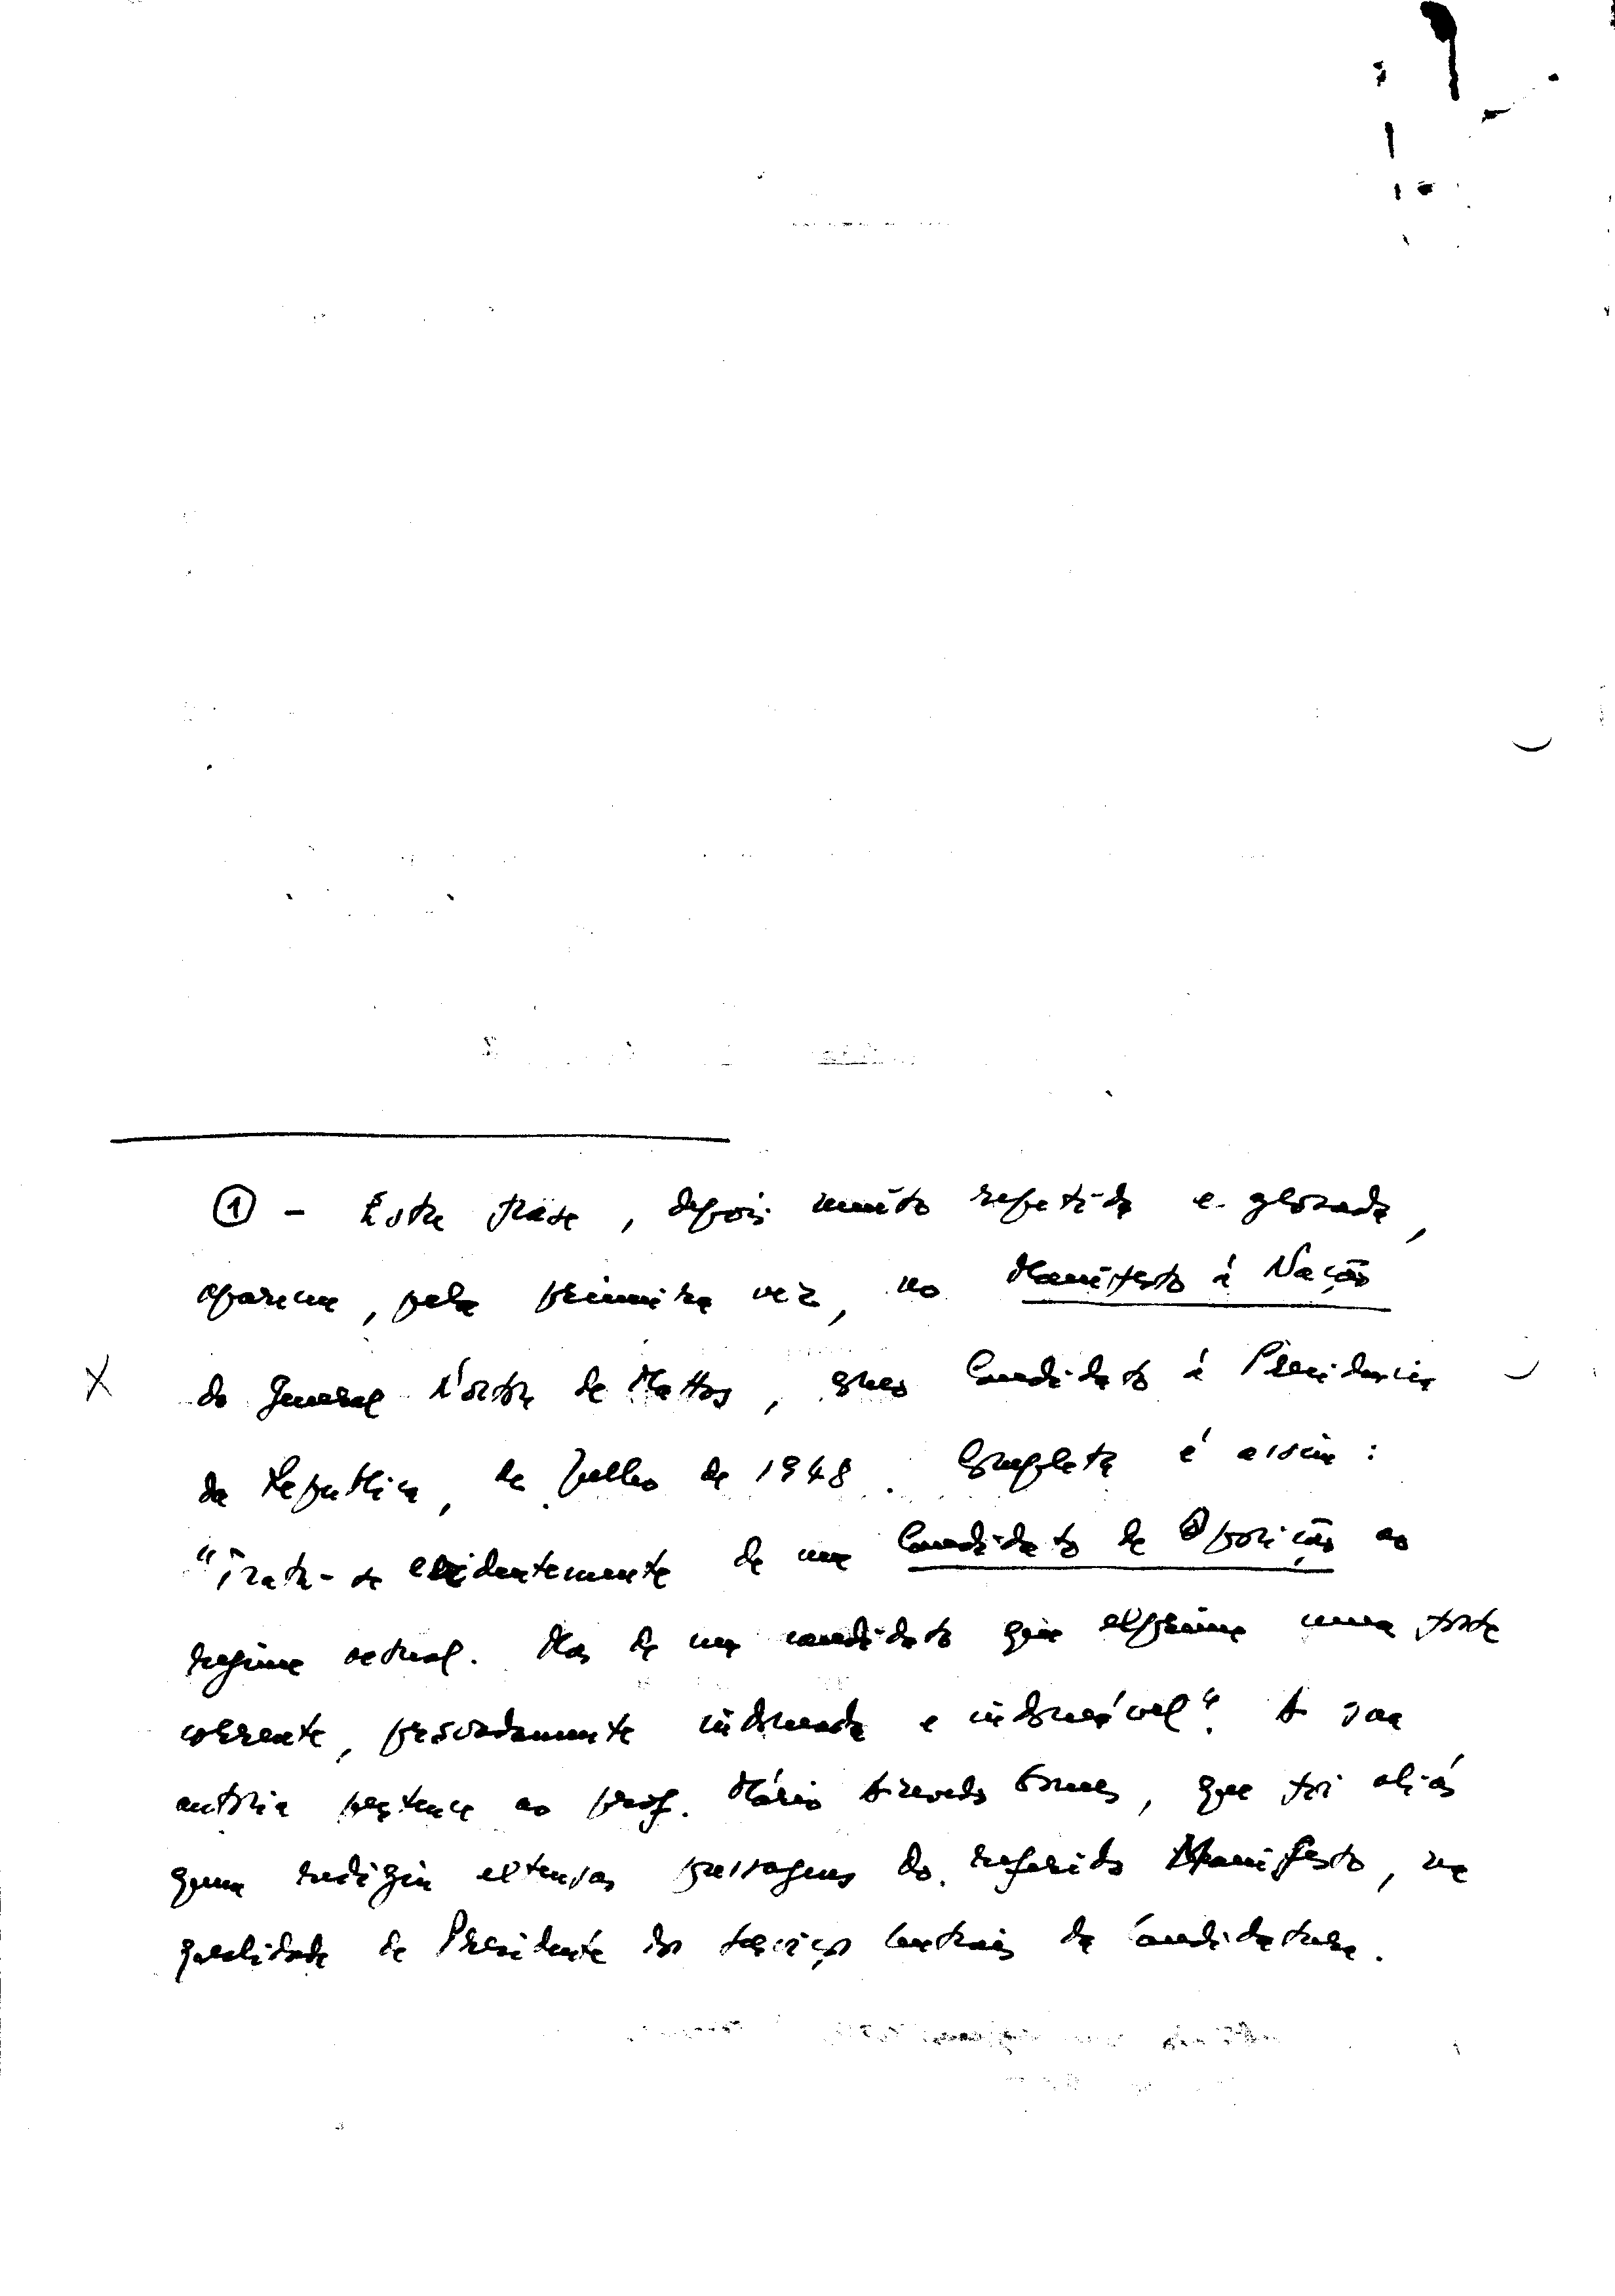 ① - Esta frase, depois muito repetida e glosada,
apareceu, pela primeira vez, no Manifesto à Nação
X do General Norton de Mattos, como Candidato à Presidencia
da Republica, de Julho de 1948. Completa é assim:
"Trata-se evidentemente de um Candidato de Oposição ao
regime actual. Mas de um candidato que exprime uma forte
corrente, provadamente indomada e indomável". A sua
autoria pertence ao prof. Mário Azevedo Gomes, que foi aliás
quem redigiu extensas passagens do referido Manifesto, na
qualidade de Presidente dos Serviços Centrais da Candidatura.